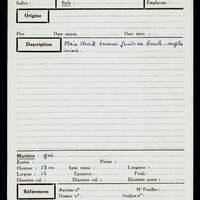 Indice : Style : Emplacem. :
Origine
Prix Date acquis. : Date inscr. :
Description Main droite tenant fruit ou boule - ongles
Matière : gré
Enduit : Patine :
Hauteur : 13 cm haut. tenon : Longueur :
Largeur : 11 Epaisseur : Poids :
Diamètre col. : Diamètre col. : Diamètre panse :
Références Ancien n° : N° Fouilles :
Dossier n° : Analyse n° :